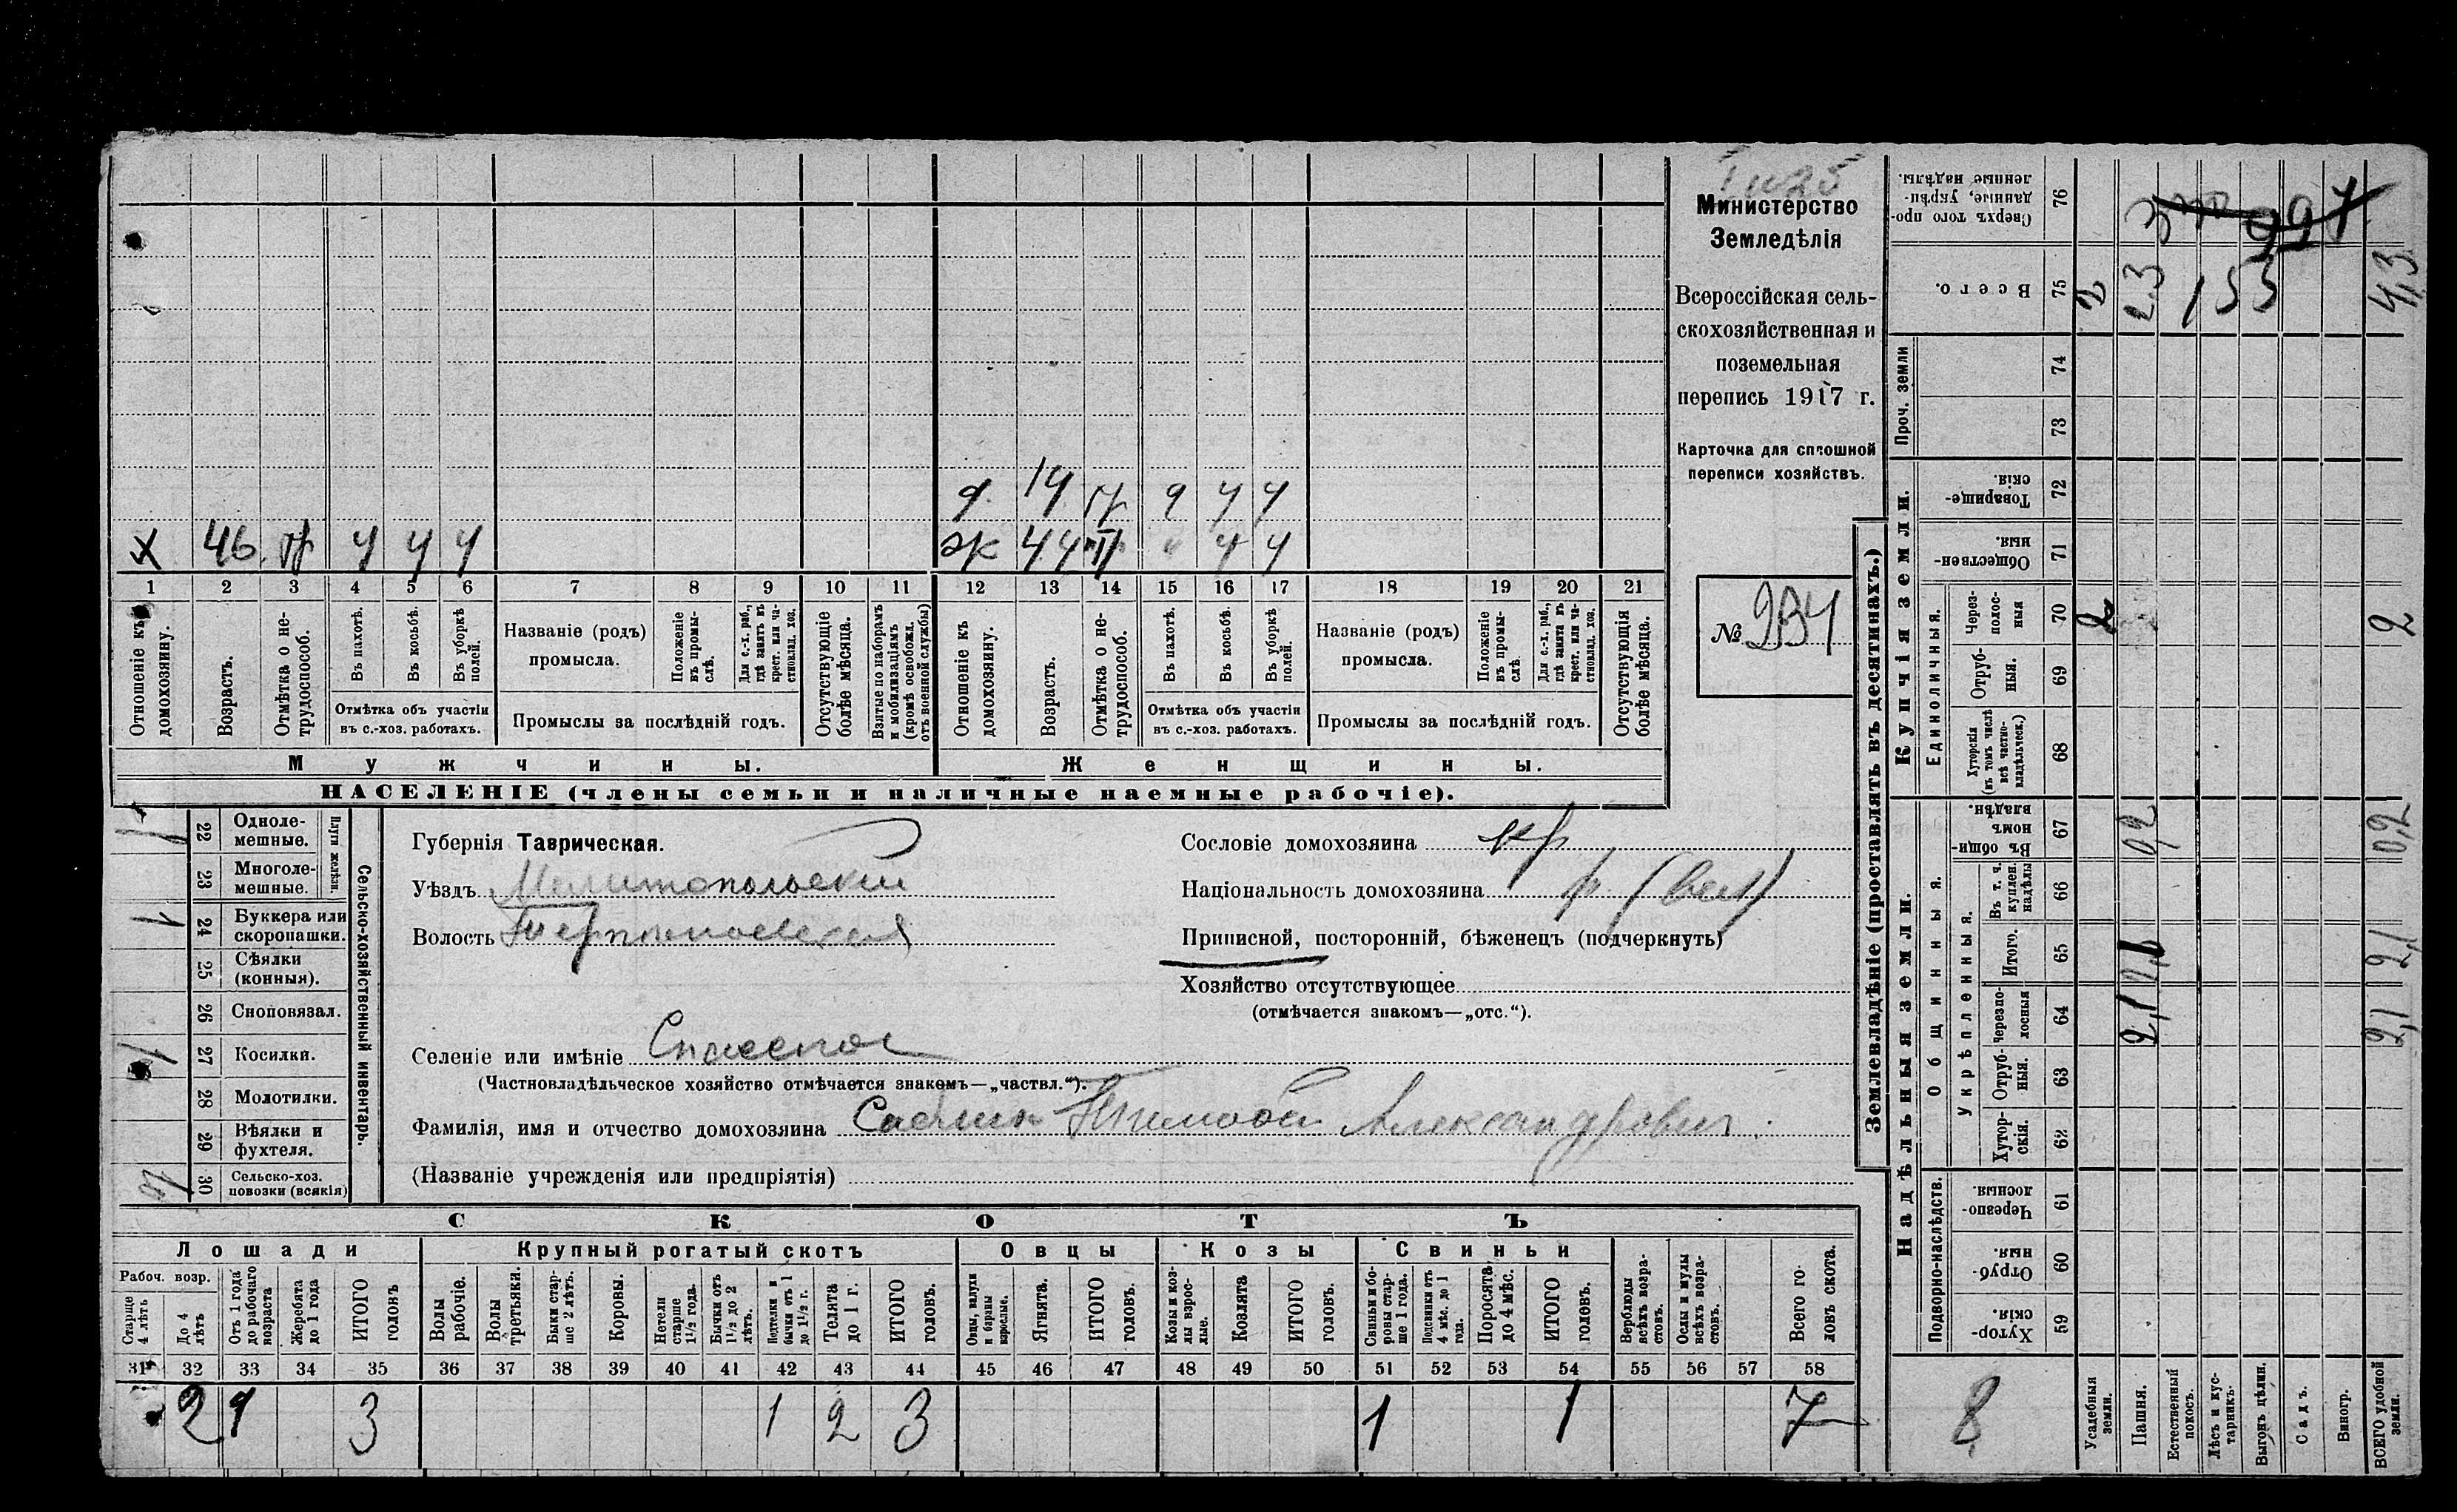 Министерство
Земледѣлія
Всероссійская сель-
скохозяйственная и
поземельная
перепись 1917 г.
Карточка для сплошной
переписи хозяйствъ.
№ 234
д. 14 9 ч ч
Х 46 ч ч ч ж 44 ч ч
1 2 3 4 5 6 7 8 9 10 11 12 13 14 15 16 17 18 19 20 21
Отношеніе къ домохозяину.
Возрастъ.
Отмѣтка о не-трудоспособ.
Въ пахотѣ.
Въ косьбѣ.
Въ уборкѣ полей.
Отмѣтка объ участіи
въ с.-хоз. работахъ.
Названіе (родъ)
промысла.
Положеніе въ промы-слѣ.
Для с.-х. раб., гдѣ занятъ въ крест. или ча-стновлад. хоз.
Промыслы за послѣдній годъ.
Отсутствующіе болѣе мѣсяца.
Взятые по наборамъ и мобилизаціямъ (кромѣ освобожд. отъ военной службы)
Отношеніе къ домохозяину.
Возрастъ.
Отмѣтка о не-трудоспособ.
Въ пахотѣ.
Въ косьбѣ.
Въ уборкѣ полей.
Отмѣтка объ участіи
въ с.-хоз. работахъ.
Названіе (родъ)
промысла.
Положеніе въ промы-слѣ.
Для с.-х. раб., гдѣ занята въ крест. или ча-стновлад. хоз.
Промыслы за послѣдній годъ.
Отсутствующія болѣе мѣсяца.
Мужчины.
Женщины.
НАСЕЛЕНІЕ (члены семьи и наличные наемные рабочіе).
Сельско-хозяйственный инвентарь.
Плуги желѣзн.
1 22 Одноле-мешные.
23 Многоле-мешные.
1 24 Буккера или скоропашки.
25 Сѣялки (конныя).
26 Сноповязал.
1 27 Косилки.
28 Молотилки.
29 Вѣялки и фухтеля.
30 Сельско-хоз. повозки (всякія)
Губернія Таврическая.
Уѣздъ Мелитопольскій
Волость Терпѣніевская
Селеніе или имѣніе Спасское
(Частновладѣльческое хозяйство отмѣчается знакомъ—„частвл.“).
Фамилія, имя и отчество домохозяина Тимофей Александровичъ
(Названіе учрежденія или предпріятія)
Сословіе домохозяина кр
Національность домохозяина р (вел)
Приписной, посторонній, бѣженецъ (подчеркнуть)
Хозяйство отсутствующее
(отмѣчается знакомъ—„отс.“).
СКОТЪ
Лошади
Крупный рогатый скотъ
Овцы
Козы
Свиньи
Рабоч. возр.
Старше 4 лѣтъ
До 4 лѣтъ
Отъ 1 года до рабочаго возраста
Жеребята до 1 года
ИТОГО головъ
Волы рабочіе.
Волы третьяки.
Быки стар-ше 2 лѣтъ.
Коровы.
Нетели старше 1½ года.
Бычки отъ 1½ до 2 лѣтъ.
Подтелки и бычки отъ 1 до 1½ г.
Телята до 1 г.
ИТОГО головъ.
Овцы, валухи и бараны взрослые.
Ягнята.
ИТОГО головъ.
Козы и коз-лы взрос-лые.
Козлята
ИТОГО головъ.
Свиньи и бо-ровы стар-ше 1 года.
Подсвинки отъ 4 мѣс. до 1 года.
Поросята до 4 мѣс.
ИТОГО головъ.
Верблюды всѣхъ возра-стовъ.
Ослы и мулы всѣхъ возра-стовъ.
Всего го-ловъ скота.
31 32 33 34 35 36 37 38 39 40 41 42 43 44 45 46 47 48 49 50 51 52 53 54 55 56 57 58
2 1 3 1 2 3 1 1 7
Землевладѣніе (проставлять въ десятинахъ.)
Надѣльныя земли.
Купчія земли.
Проч. земли
Подворно-наслѣдств.
Общинныя.
Укрѣпленныя.
Единоличныя.
Хутор-скія. 59
Отруб-ныя. 60
Черезпо-лосныя. 61
Хутор-скія. 62
Отруб-ныя. 63
Черезпо-лосныя 64
Итого. 65
Въ т. ч. куплен. надѣлы 66
Въ общин-номъ владѣн. 67
Хуторскія (въ томъ числѣ всѣ частно-владѣльческ.) 68
Отруб-ныя. 69
Через-полос-ныя 70
Обществен-ныя. 71
Товарище-скія. 72
73
74
Всего. 75
Сверхъ того про-данные, укрѣп-ленные надѣлы. 76
8
Усадебныя земли.
Пашня.
Естественный покосъ.
Лѣсъ и кус-тарникъ.
Выгонъ цѣлин.
Садъ.
Виногр.
ВСЕГО удобной земли.
2 2
2,1 2,1
0,2 0,2
2 2,3 155 4,3